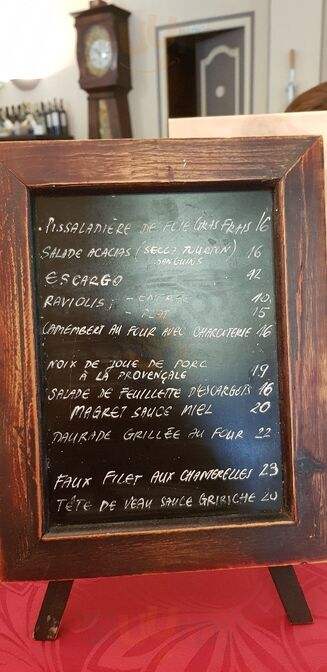 . PISSALADIÈRE DE FOIE GRAS FRAIS 16
SALADE ACACIAS (SECCA TOURTON) 16
SANGUINS
ESCARGO 12
RAVIOLIS: - ENTRÉE 10
- PLAT 15
CAMEMBERT AU FOUR AVEC CHARCUTERIE 16
NOIX DE JOUE DE PORC
À LA PROVENÇALE 19
SALADE DE FEUILLETE D'ESCARGOTS 16
MAGRET SAUCE MIEL 20
DAURADE GRILLÉE AU FOUR 22
FAUX FILET AUX CHANTERELLES 23
TÊTE DE VEAU SAUCE GRIBICHE 20